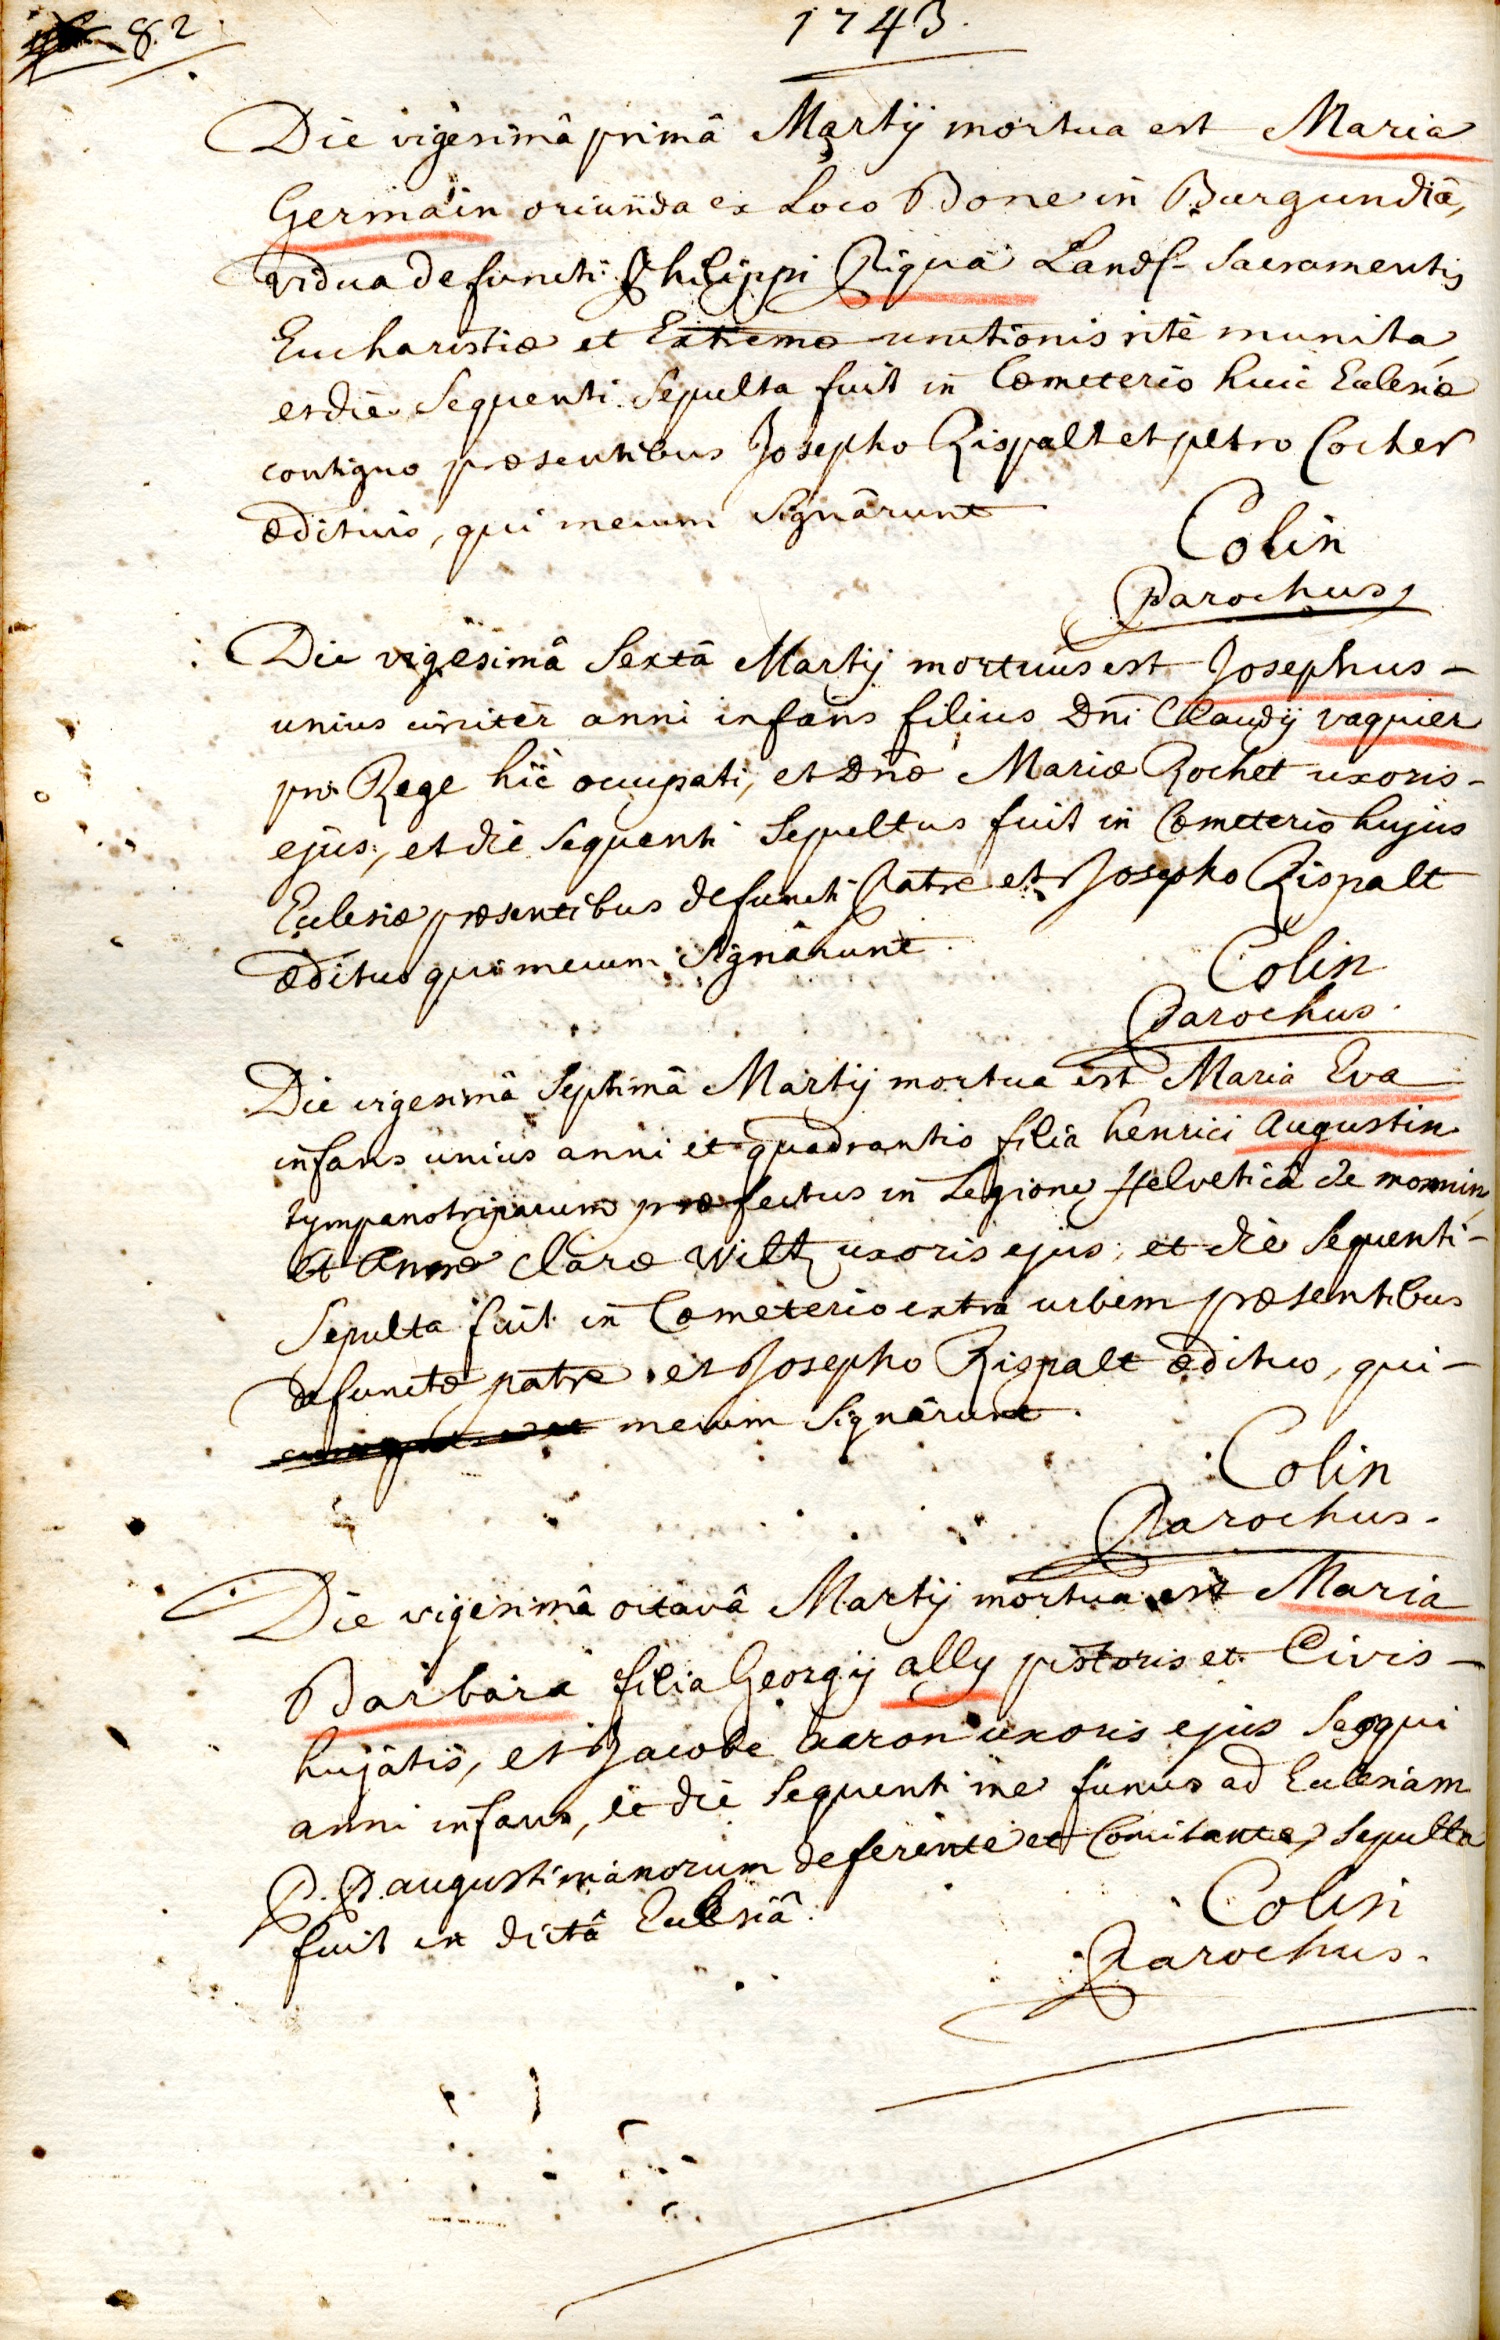 82
1743.
Die vigesimâ primâ Martij mortua est Maria
Germain oriunda ex Loco Bone in Burgundiâ,
vidua defuncti Philippi Riqua Sacramentis
Eucharistiæ et Extremæ unctionis ritè munita,
et die Sequenti Sepulta fuit in Cœmeterio huic Eclesiæ
contiguo præsentibus Josepho Rispalt et petro Cocher
ædituis, qui mecum Signârunt
Colin
Parochus,
Die vigesimâ Sextâ Martij mortuus est Josephus -
unius circiter anni infans filius Dni Claudij vaquier
pro Rege hic occupati, et Dnæ Mariæ Rochet uxoris -
ejus, et die Sequenti Sepultus fuit in Cœmeterio hujus
Eclesiæ præsentibus defuncti Patre et Josepho Rispalt
ædituo qui mecum Signârunt.
Colin
Parochus.
Die vigesimâ Septimâ Martij mortua est Maria Eva
infans unius anni et quadrantis filia henrici Augustin
tympanotripârum præfectus in Legione Helveticâ de monnin,
et Annæ Claræ Wiltz uxoris ejus, et die Sequenti -
Sepulta fuit in Cœmeterio extra urbem præsentibus
defunctæ patre et Josepho Rispalt ædituo, qui -
mecum Signârunt.
Colin
Parochus.
Die vigesimâ octavâ Martij mortua est Maria
Barbara filia Georgij ally pistoris et Civis -
hujatis, et Jacobe aaron uxoris ejus Sesqui
anni infans, et die Sequenti me funus ad Eclesiam
P. P. augustinianorum deferente et Comitante, Sepulta
fuit in dictâ Eclesiâ.
Colin
Parochus.